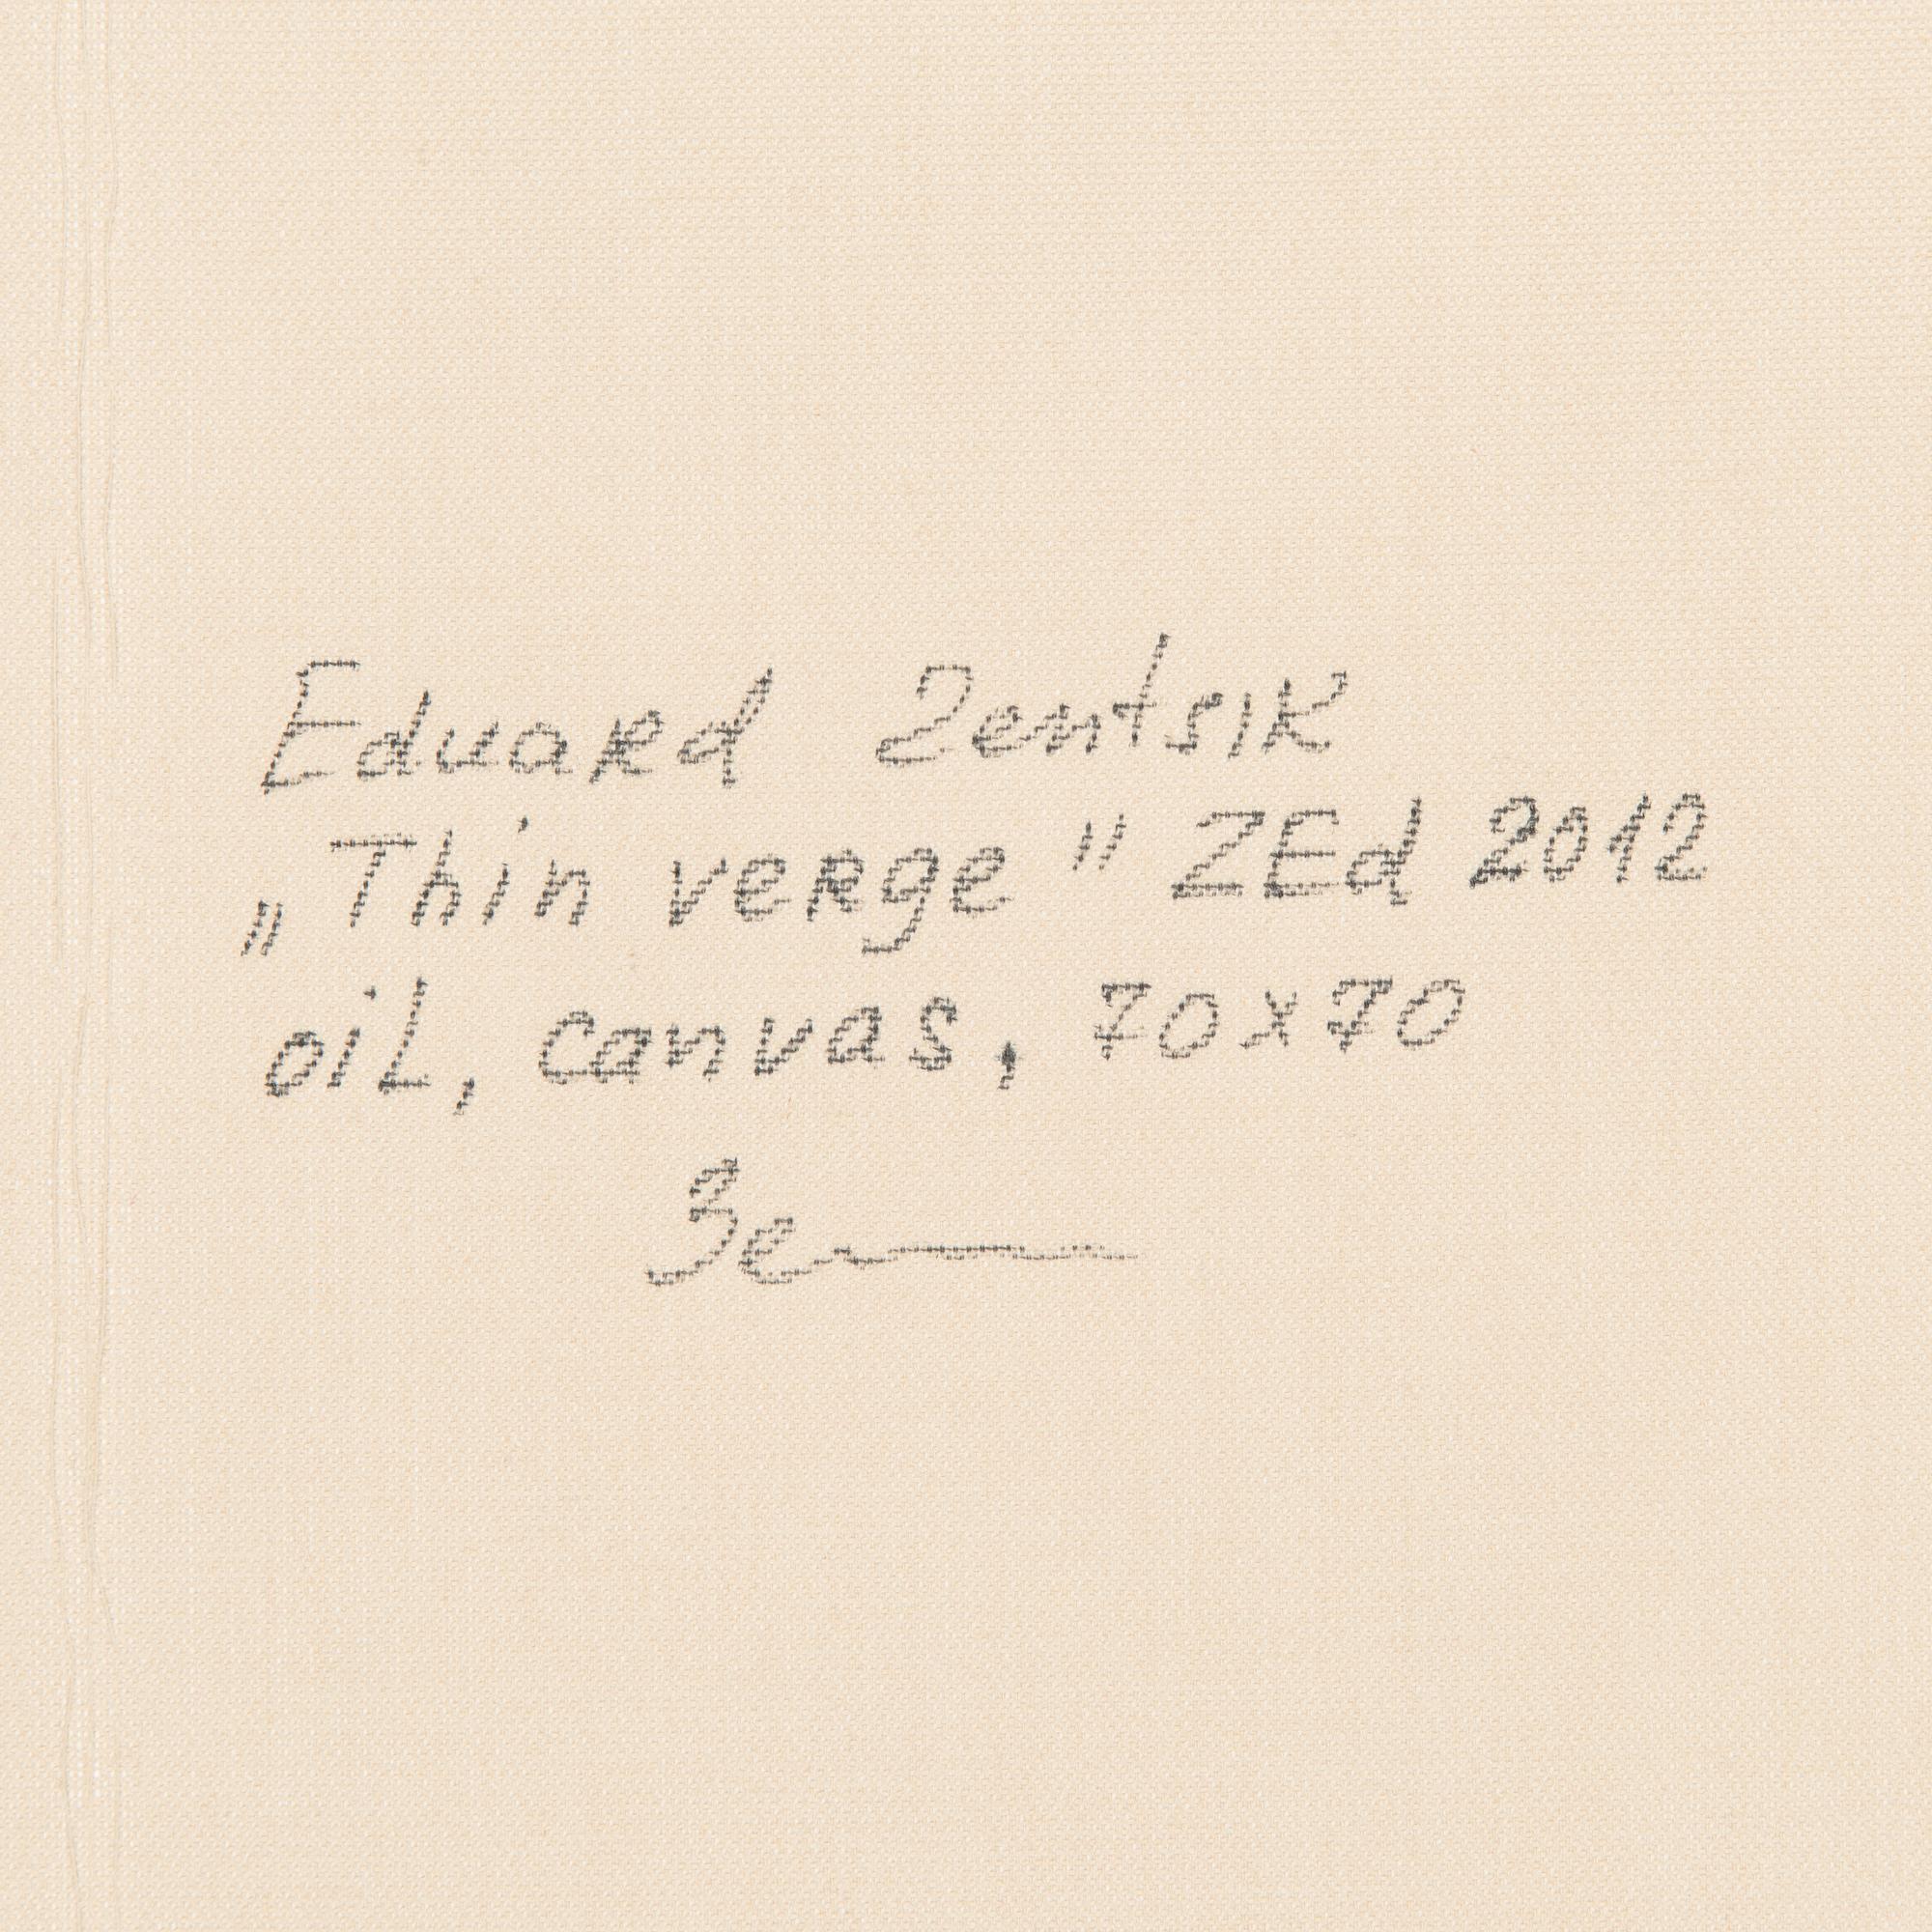 Eduard Zentsik
„Thin verge" ZEd 2012
oil, canvas, 70x70
Зе